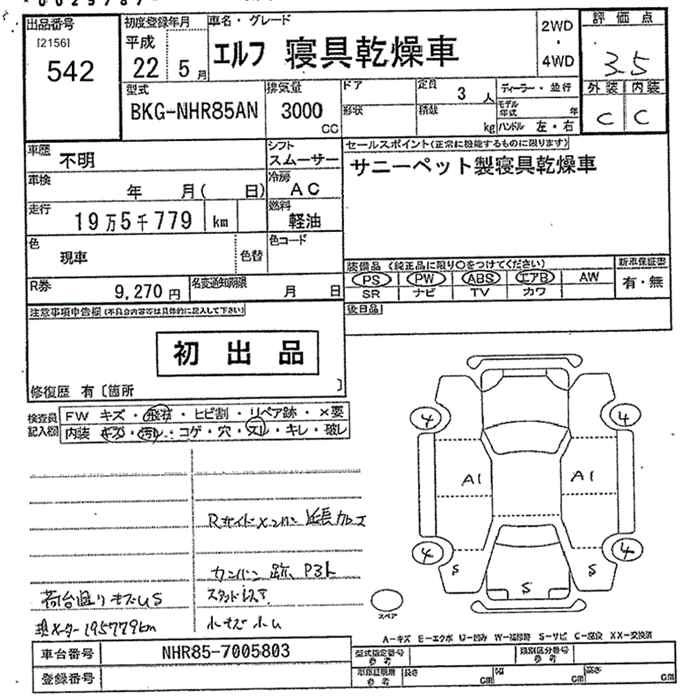 出品番号
[2156]
542
初度登録年月
平成
22年 5月
車名・グレード
エルフ 寝具乾燥車
2WD
・
4WD
評価点
3.5
外装 内装
C C
型式
BKG-NHR85AN
排気量
3000
CC
ドア
形状
定員
3人
積載
kg
ディーラー・並行
モデル年式 年
ハンドル 左・右
車歴
不明
シフト
スムーサー
車検
年 月( 日)
冷房
AC
走行
19万5千779 km
燃料
軽油
色
現車
色替
色コード
R券
9,270円
名変通知期限
月 日
セールスポイント(正常に機能するものに限ります)
サニーペット製寝具乾燥車
装備品 (純正品に限り○をつけてください)
PS PW ABS エアB AW
SR ナビ TV カワ
新車保証書
有・無
後日品
注意事項申告欄(不具合内容等は具体的に記入して下さい)
初出品
修復歴 有〔箇所 〕
検査員記入欄
FW キズ・飛石・ヒビ割・リペア跡・×要
内装 キズ・汚れ・コゲ・穴・スレ・キレ・破レ
4 4
A1 A1
4 4
S S S
スペア
荷台廻り
195779km
P3L
A-キズ E-エクボ U-凹み W-補修跡 S-サビ C-腐食 XX-交換済
車台番号
NHR85-7005803
登録番号
型式指定番号 参考
類別区分番号 参考
車庫証明用 参考
長さ cm
幅 cm
高さ cm